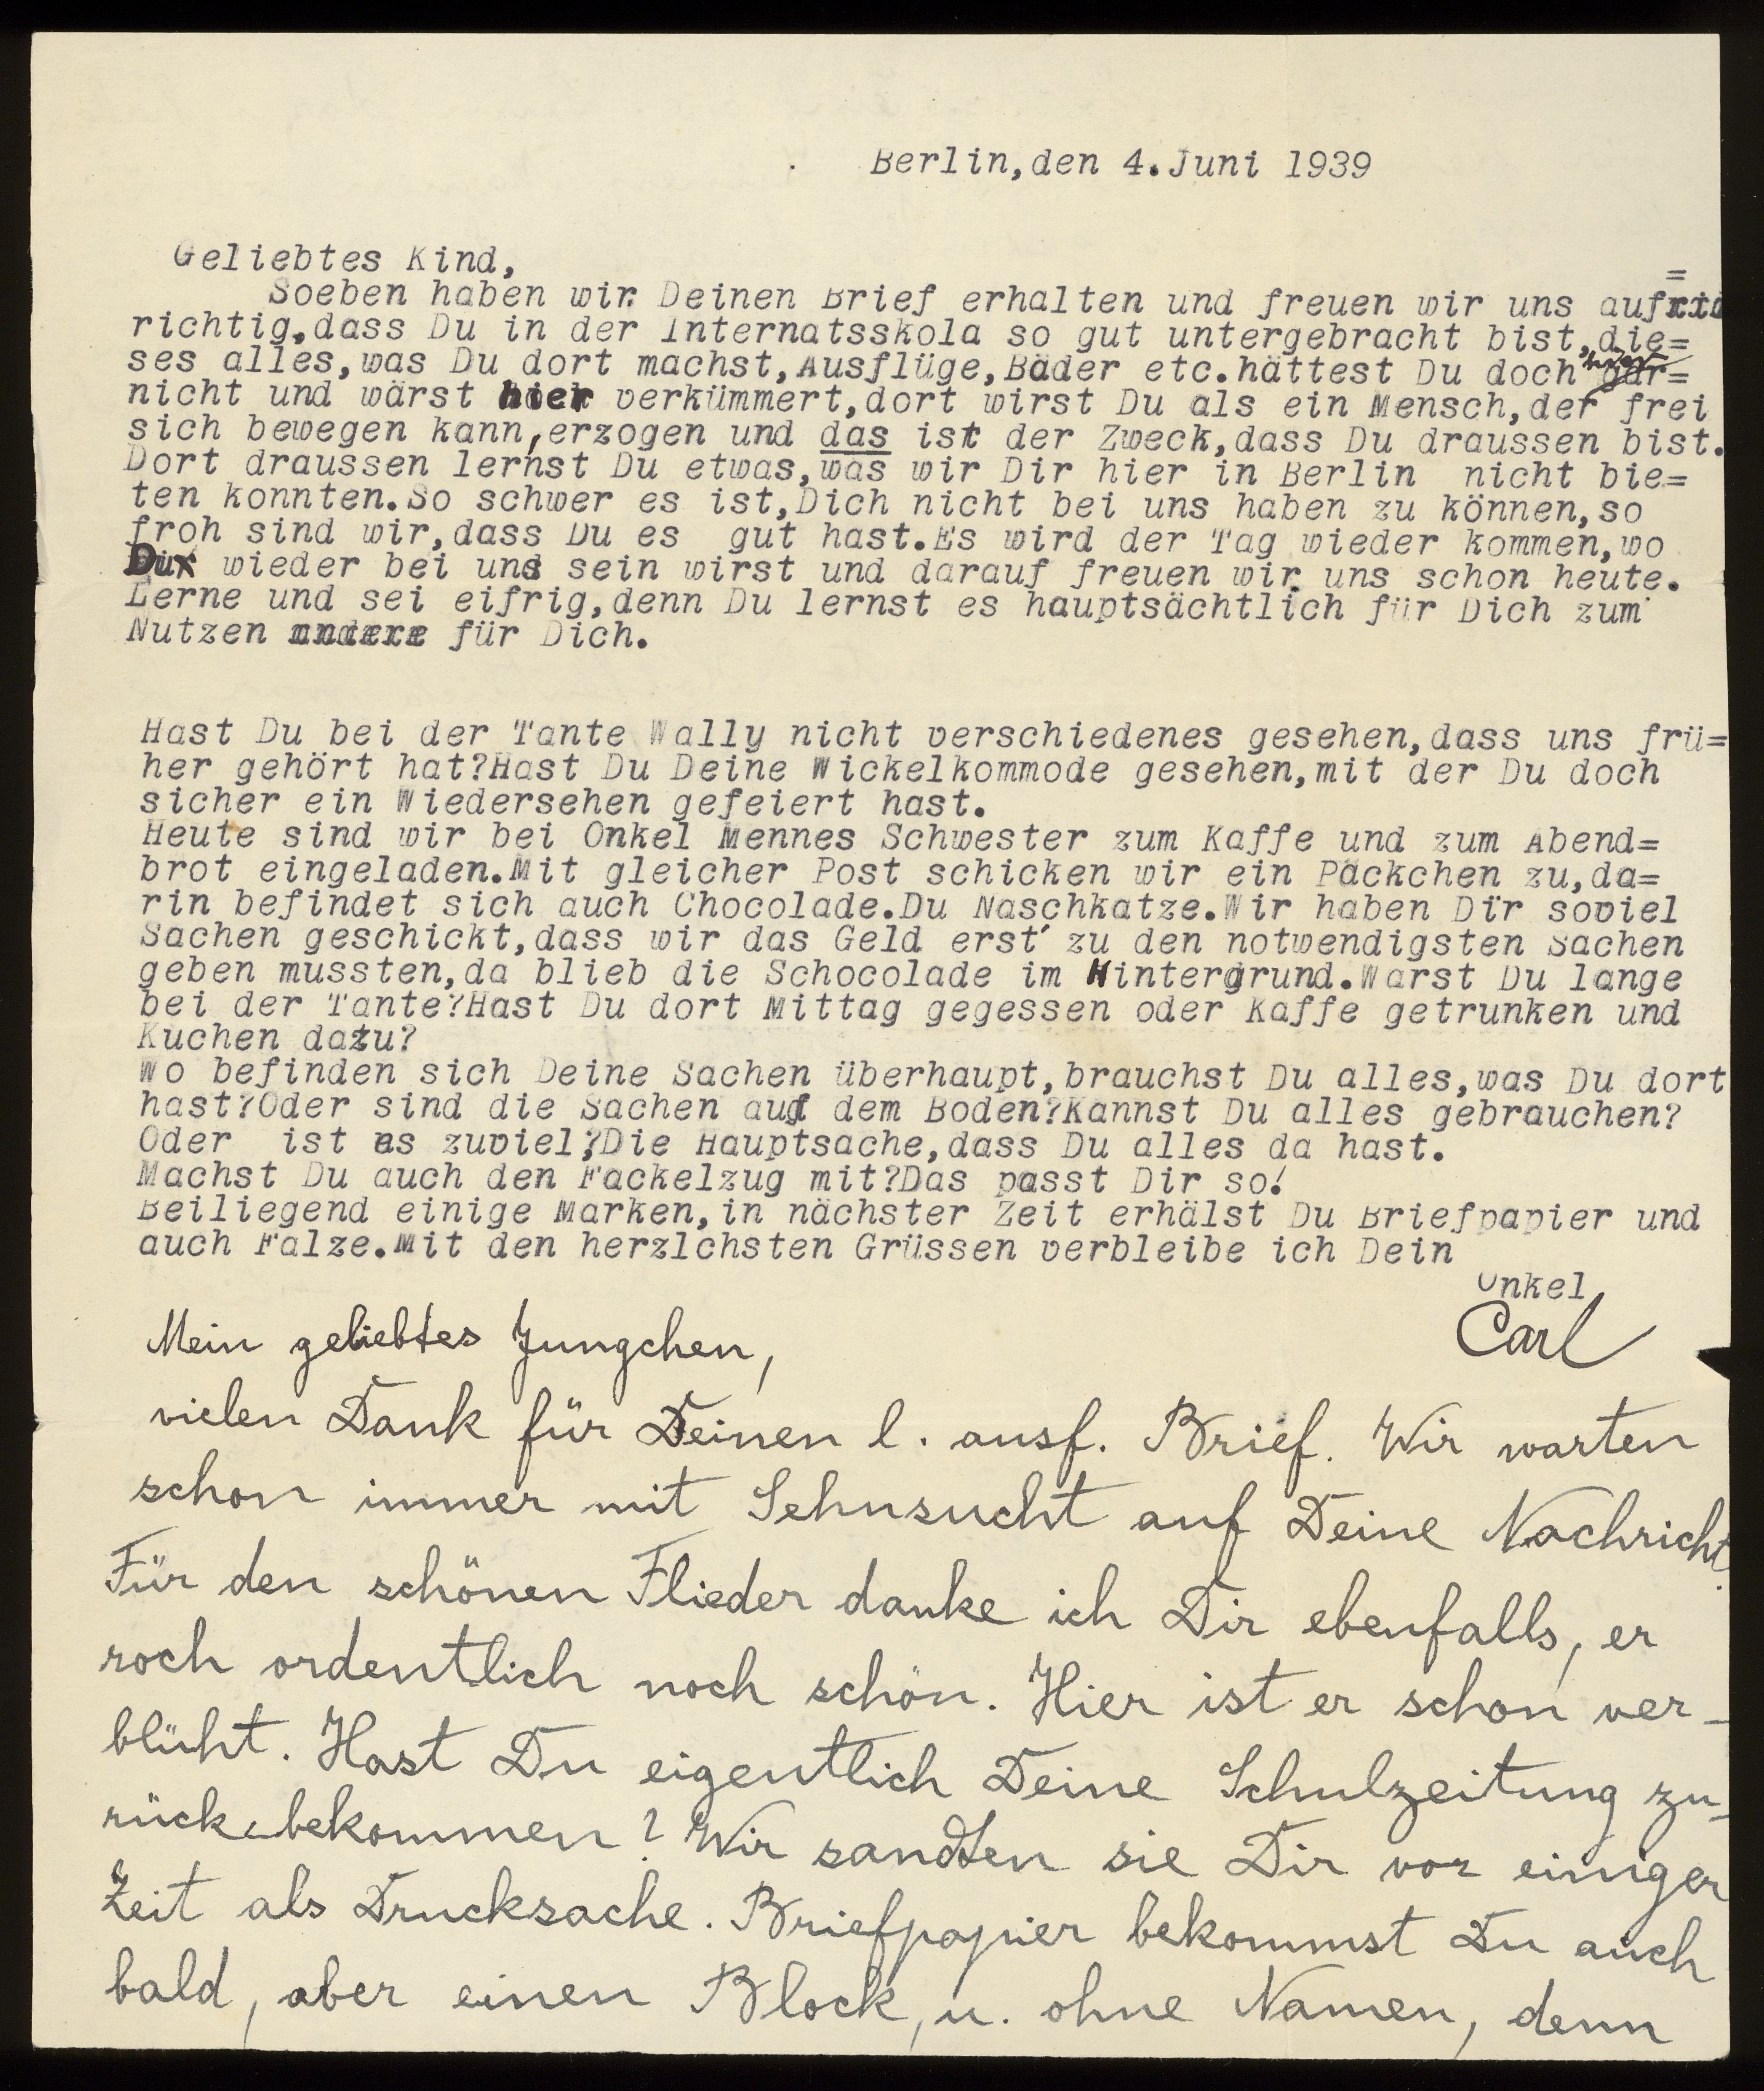 Berlin,den 4.Juni 1939
Geliebtes Kind,
Soeben haben wir Deinen Brief erhalten und freuen wir uns auf=
richtig,dass Du in der Internatsskola so gut untergebracht bist,die=
ses alles,was Du dort machst,Ausflüge,Bäder etc.hättest Du doch hier
nicht und wärst hier verkümmert,dort wirst Du als ein Mensch,der frei
sich bewegen kann,erzogen und das ist der Zweck,dass Du draussen bist.
Dort draussen lernst Du etwas,was wir Dir hier in Berlin nicht bie=
ten konnten.So schwer es ist,Dich nicht bei uns haben zu können,so
froh sind wir,dass Du es gut hast.Es wird der Tag wieder kommen,wo
Du wieder bei uns sein wirst und darauf freuen wir uns schon heute.
Lerne und sei eifrig,denn Du lernst es hauptsächtlich für Dich zum
Nutzen für Dich.
Hast Du bei der Tante Wally nicht verschiedenes gesehen,dass uns frü=
her gehört hat?Hast Du Deine Wickelkommode gesehen,mit der Du doch
sicher ein Wiedersehen gefeiert hast.
Heute sind wir bei Onkel Mennes Schwester zum Kaffe und zum Abend=
brot eingeladen.Mit gleicher Post schicken wir ein Päckchen zu,da=
rin befindet sich auch Chocolade.Du Naschkatze.Wir haben Dir soviel
Sachen geschickt,dass wir das Geld erst' zu den notwendigsten Sachen
geben mussten,da blieb die Schocolade im Hintergrund.Warst Du lange
bei der Tante?Hast Du dort Mittag gegessen oder Kaffe getrunken und
Kuchen dazu?
Wo befinden sich Deine Sachen überhaupt,brauchst Du alles,was Du dort
hast?Oder sind die Sachen auf dem Boden?Kannst Du alles gebrauchen?
Oder ist es zuviel?Die Hauptsache,dass Du alles da hast.
Machst Du auch den Fackelzug mit?Das passt Dir so!
Beiliegend einige Marken,in nächster Zeit erhälst Du Briefpapier und
auch Falze.Mit den herzlchsten Grüssen verbleibe ich Dein
Onkel
Carl
Mein geliebtes Jungchen,
vielen Dank für Deinen l. ausf. Brief. Wir warten
schon immer mit Sehnsucht auf Deine Nachricht.
Für den schönen Flieder danke ich Dir ebenfalls, er
roch ordentlich noch schön. Hier ist er schon ver-
blüht. Hast Du eigentlich Deine Schulzeitung zu-
rückbekommen? Wir sandten sie Dir vor einiger
Zeit als Drucksache. Briefpapier bekommst Du auch
bald, aber einen Block, u. ohne Namen, denn